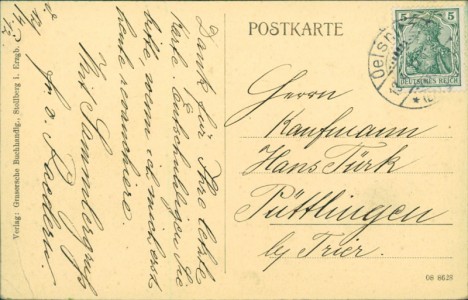 POSTKARTE
5 5
DEUTSCHES REICH
Oelsn
Herrn
Kaufmann
Hans Türk
Püttlingen
by Trier.
08 8628
Dank für Ihre letzte
Karte. Entschuldigen Sie
bitte, wenn ich mich erst
heute revanchiere.
Mit Sammlergruß
Verlag: Grasersche Buchhandlg., Stollberg i. Erzgb.